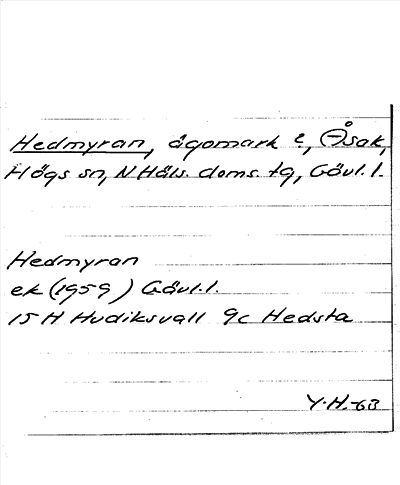 Hedmyran, ägomark t, Åsak,
Högs sn, N Häls. doms. tg, Gävl. l.
Hedmyran
ek (1959) Gävl. l.
15 H Hudiksvall 9c Hedsta
Y.H.-63